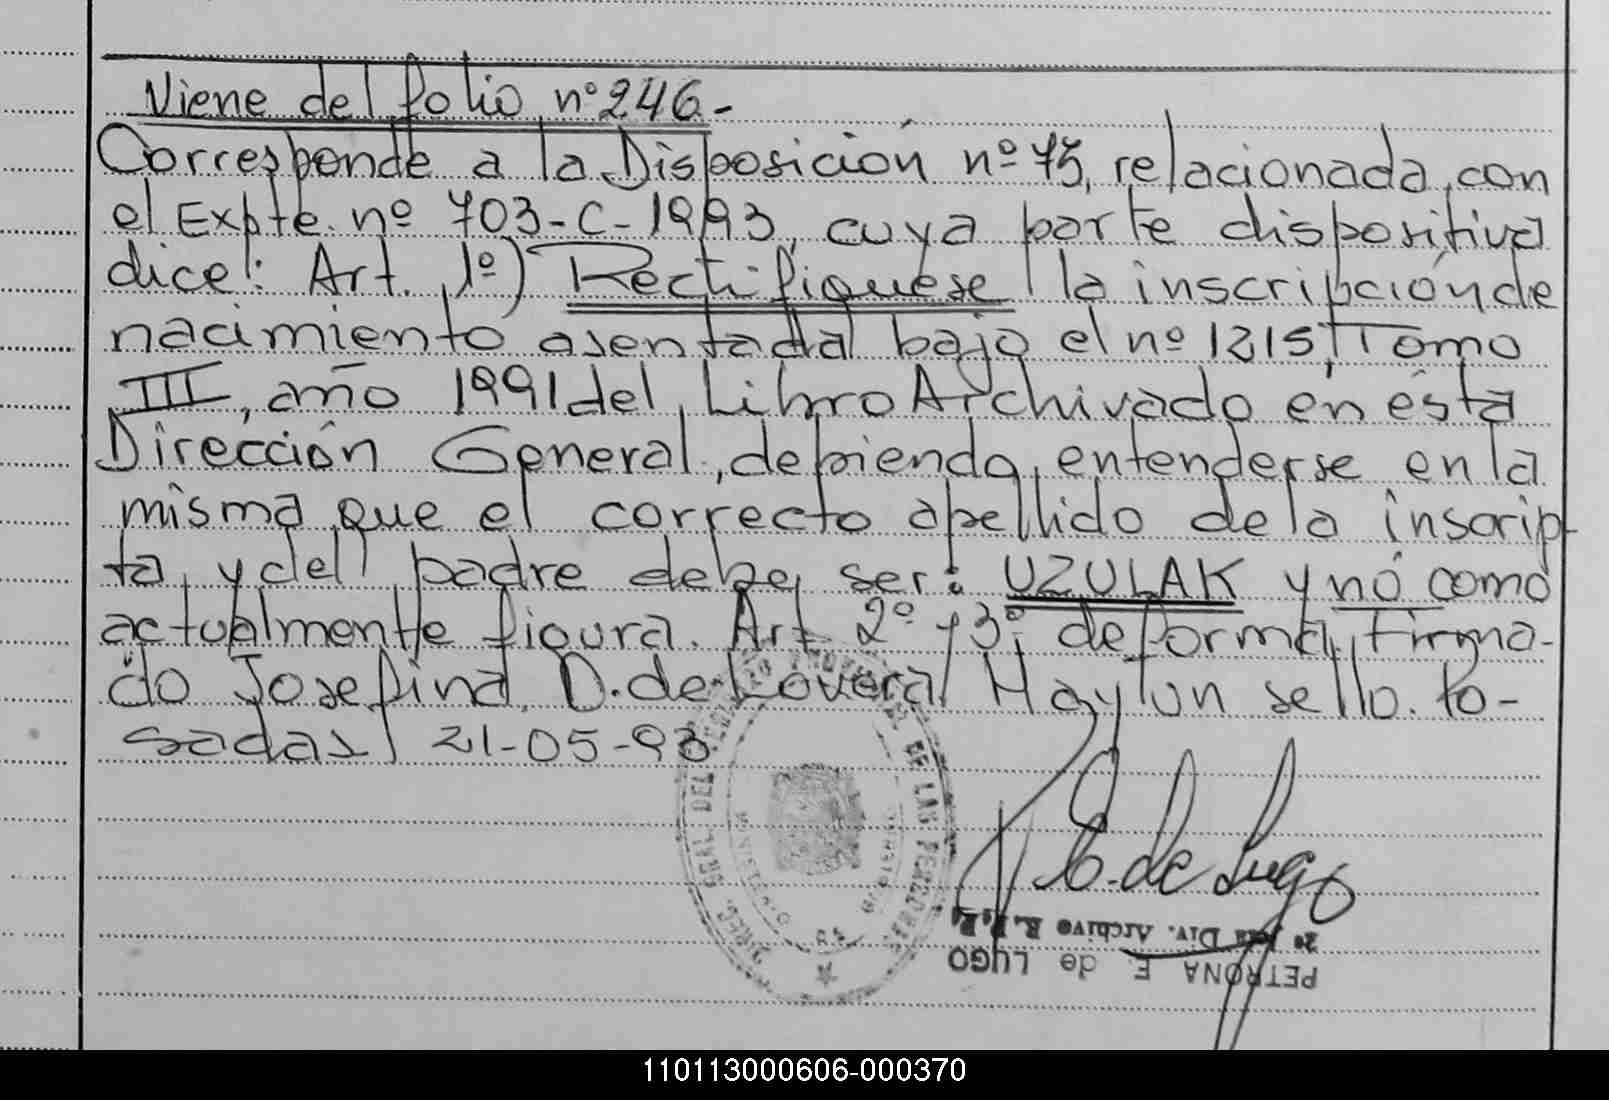 Viene del folio nº 246.-
Corresponde a la Disposición nº 75, relacionada con
el Expte. nº 703-C-1993, cuya parte dispositiva
dice: Art. 1º) Rectifíquese la inscripción de
nacimiento asentada bajo el nº 1215, Tomo
III, año 1991 del Libro Archivado en ésta
Dirección General, debiendo entenderse en la
misma que el correcto apellido de la inscrip-
ta y del padre debe ser: UZULAK y nó como
actualmente figura. Art. 2º y 3º; de forma, Firma-
do Josefina D. de Lovera. Hay un sello. Po-
sadas, 21-05-93
DIREC. GRAL. DEL REGISTRO PROVINCIAL DE LAS PERSONAS
MINISTERIO
E. de Lugo
PETRONA E. de LUGO
2º Jefa Div. Archivo R.P.P.
110113000606-000370